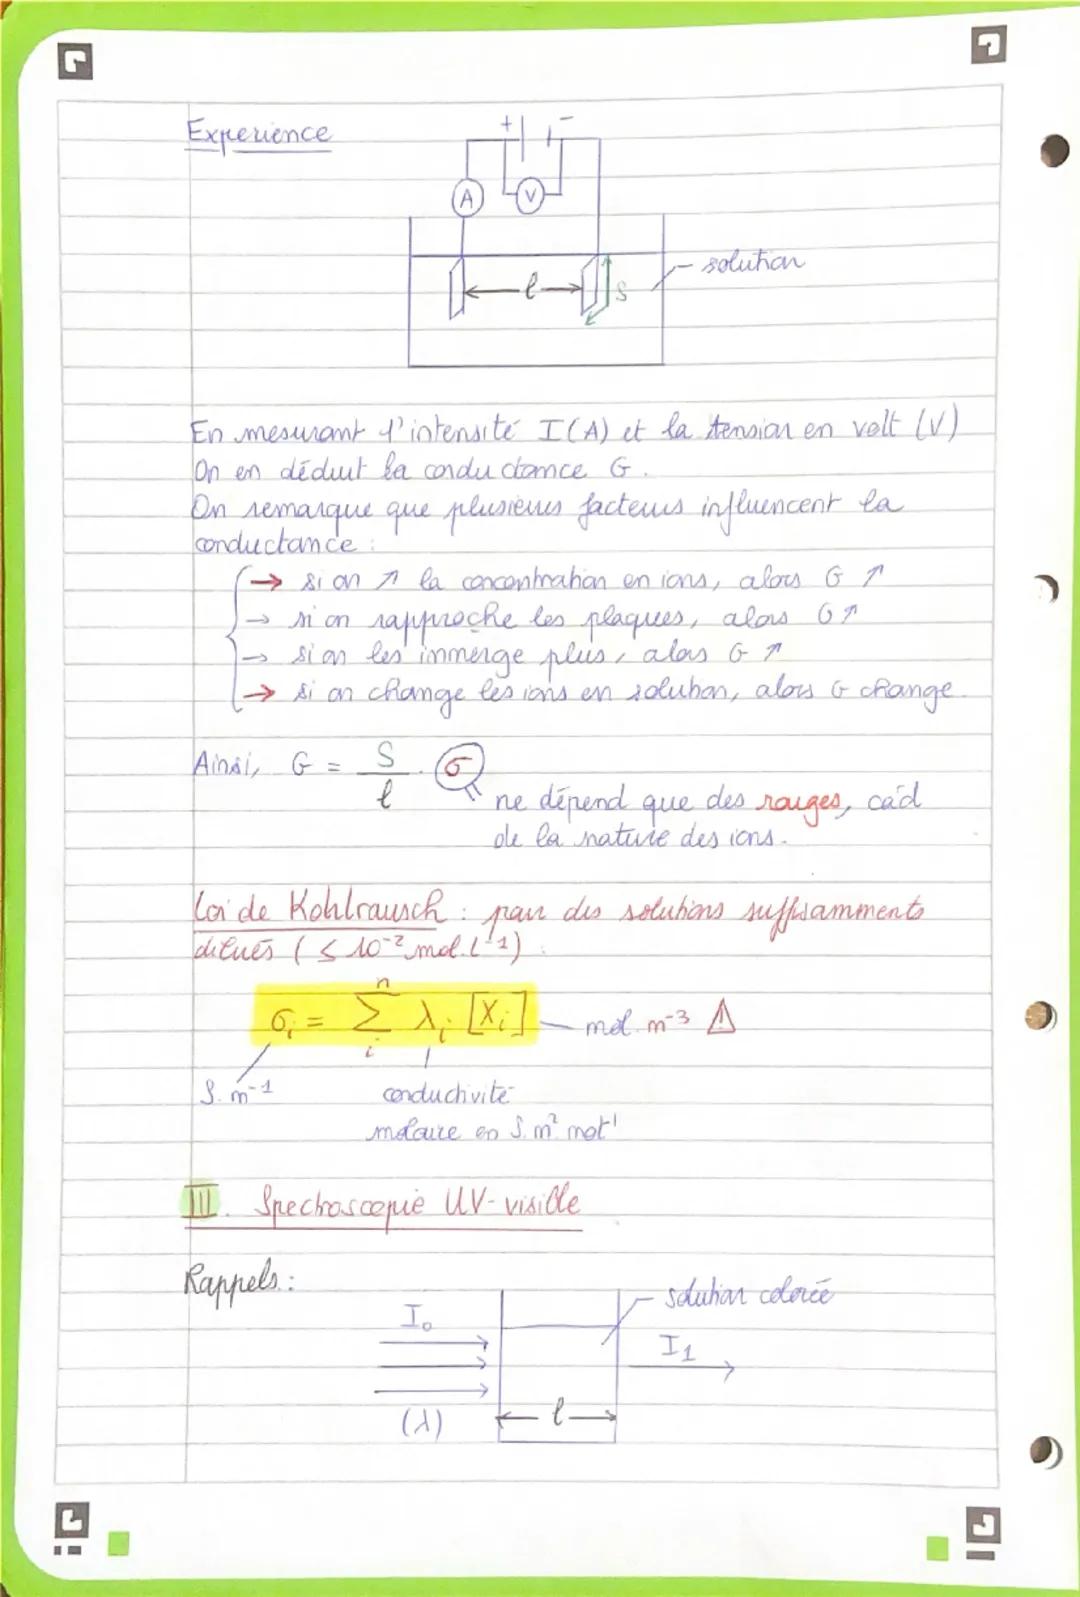 Experience
+ -
A V
solution
l S
En mesurant l'intensité I(A) et la tension en volt (V)
On en déduit la conductance G.
On remarque que plusieurs facteurs influencent la
conductance :
→ si on ↗ la concentration en ions, alors G ↗
→ si on rapproche les plaques, alors G ↗
→ si on les immerge plus, alors G ↗
→ si on change les ions en solution, alors G change.
Ainsi, G = S/l · σ
ne dépend que des rouges, càd
de la nature des ions.
Loi de Kohlrausch : pour des solutions suffisamments
diluées (≤ 10⁻² mol.L⁻¹) :
σᵢ = Σⁿᵢ λᵢ [Xᵢ] mol.m⁻³ ⚠
S.m⁻¹ conductivité
molaire en S.m² mol⁻¹
III. Spectroscopie UV-visible
Rappels :
solution colorée
I₀ I₁
(λ) l